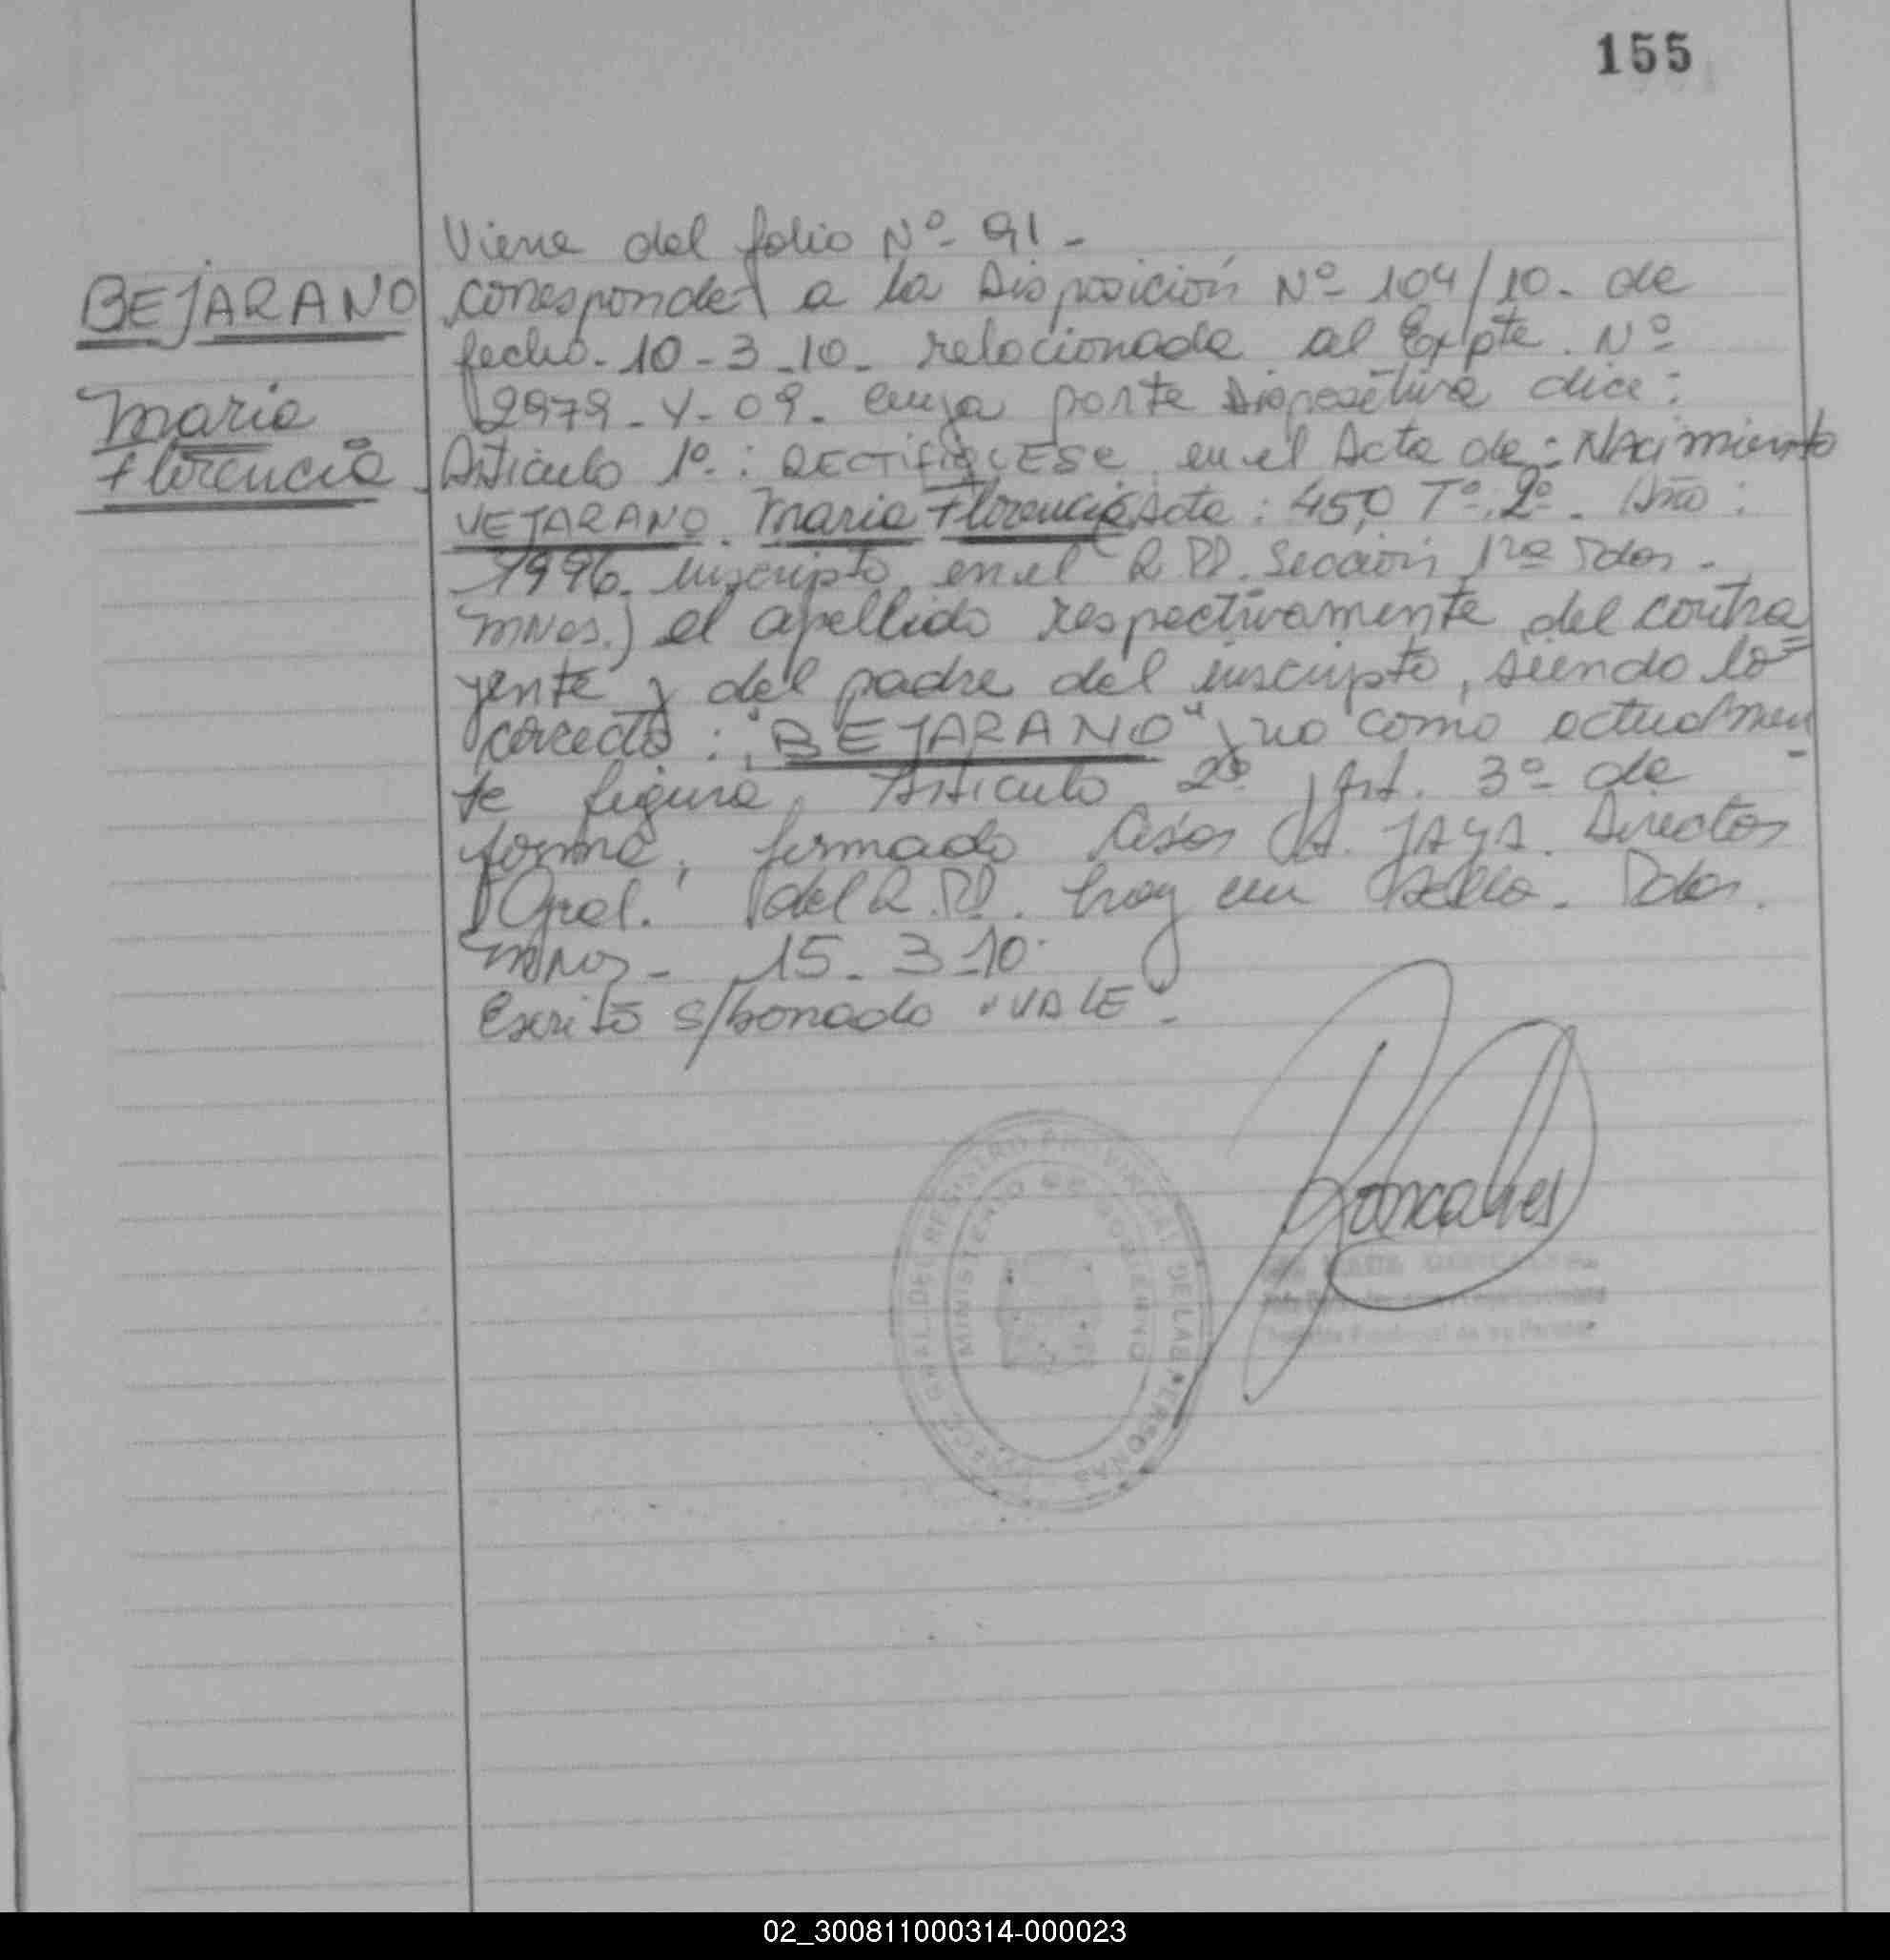 155
BEJARANO
Maria
Florencia
Viene del folio Nº 91 -
corresponde a la Disposición Nº 104/10. de
fecha. 10-3-10- relacionada al Expte. Nº
2979-Y-09. cuya parte dispositiva dice:
Articulo 1º: RECTIFIQUESE en el Acta de: NAcimiento
VEJARANO. Maria Florencia Acta: 450 Tº 2º. Año:
1996. inscripto, en el R.P.P. Sección 1ra Pdas.
MNes.) el apellido respectivamente del contra
yente y del padre del inscripto, siendo lo
correcto: "BEJARANO" y no como actualmen
te figura, Articulo 2º, Art. 3º de
forma, firmado A. JAyA. Director
Gral. del R.P.P. hay un sello. Pdas.
MNes - 15-3-10.
Escrito s/borrado "VALE" -
Goncalves
REGISTRO PROVINCIAL DE LAS PERSONAS
MINISTERIO DE GOBIERNO
02_300811000314-000023